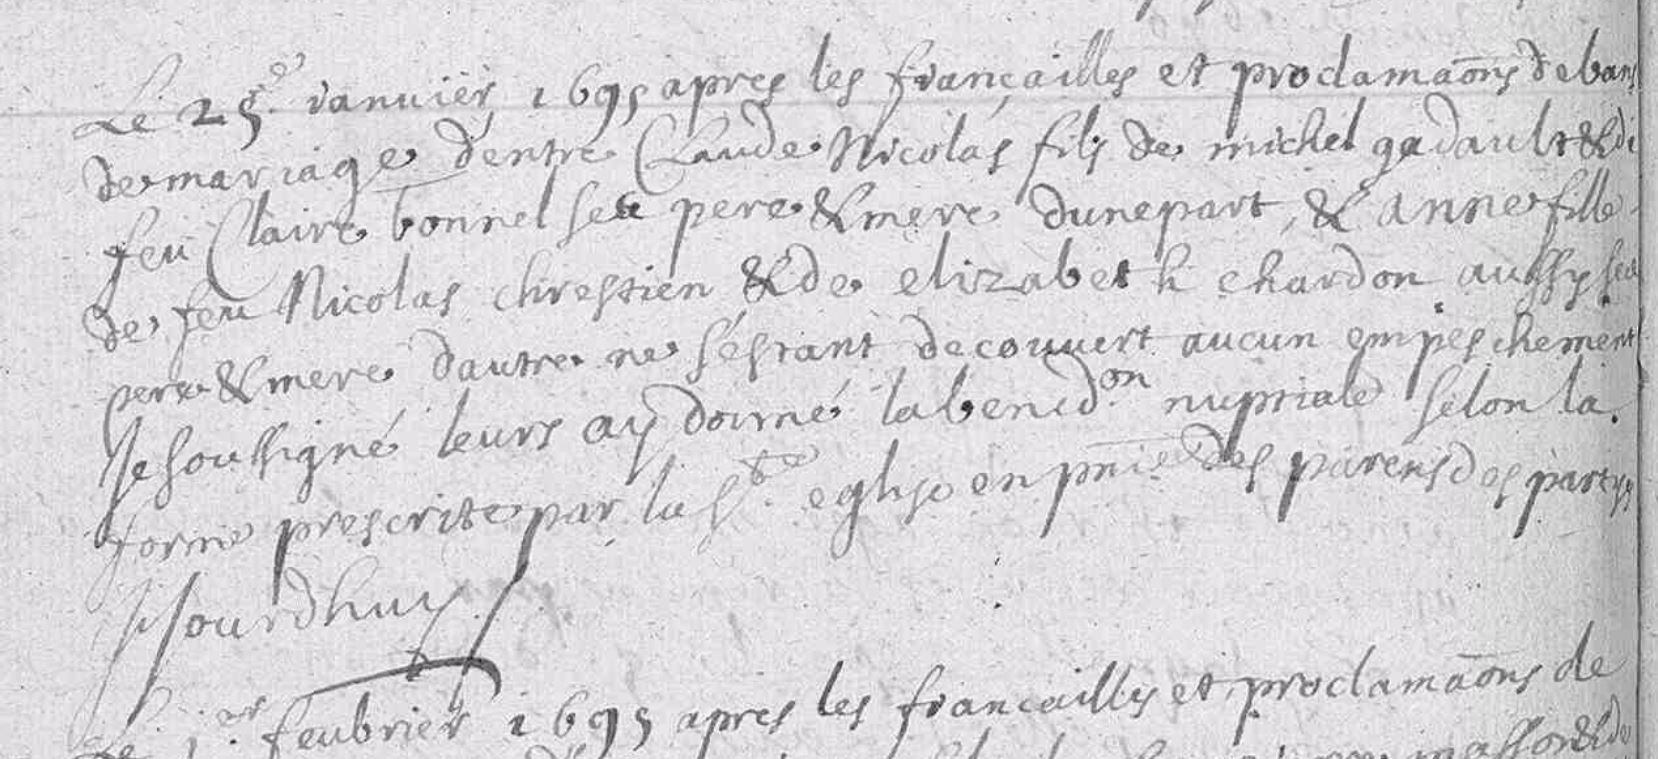 Le 25e. ianuiër 1695 apres les françailles et proclamaōns de bans
de mariage d'entre Claude Nicolas fils de michel gadault & di
feu Claire bonnel ses pere & mere dunepart, & anne fille
de feu Nicolas chrestien & de elizabeth chardon aussy ses
pere & mere dautre ne s'éstant decouuert aucun empeschement
Je soussigné leurs ay donné la benidon nuptiale sélon la
forme prescrite par la Ste. eglise en pn̄ie des parens des partys
Jourdhuy
Le 1er feubrier 1695 apres les francaillys et proclamaōns de
masson & de